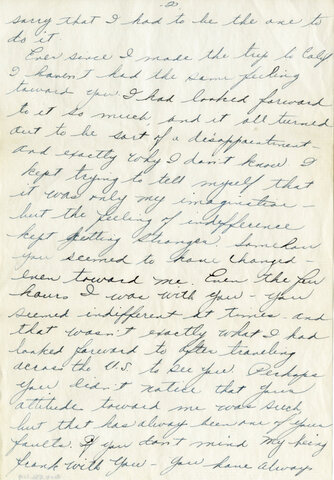 -2-
sorry that I had to be the one to
do it.
Ever since I made the trip to Calif
I haven't had the same feeling
toward you I had looked forward
to it so much, and it all turned
out to be sort of a disappointment-
and exactly why I don't know I
kept trying to tell myself that
it was only my imagination -
but the feeling of indifference
kept getting stronger. Somehow
you seemed to have changed -
even toward me. Even the few
hours I was with you - you
seemed indifferent at times - and
that wasn't exactly what I had
looked forward to after traveling
across the U.S. to see you. Perhaps
you didn't notice that your
attitude toward me was such,
but that has always been one of your
faults. If you don't mind my being
frank with you - you have always